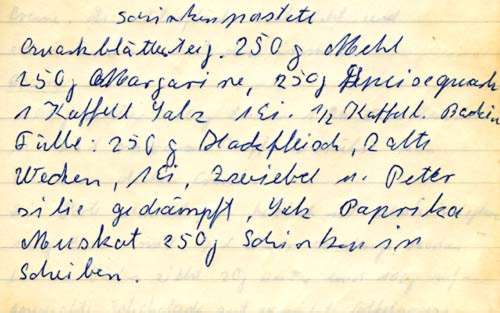 Schinkenpastete
Quarkblätterteig. 250 g Mehl
250 g Margarine, 250 g Speisequark
1 Kaffeel Salz 1 Ei. 1/2 Kaffeel. Backin
Fülle: 250 g Hackfleisch, 2 alte
Wecken, 1 Ei, Zwiebel u. Peter
silie gedämpft, Salz Paprika
Muskat 250 g Schinken in
Scheiben.